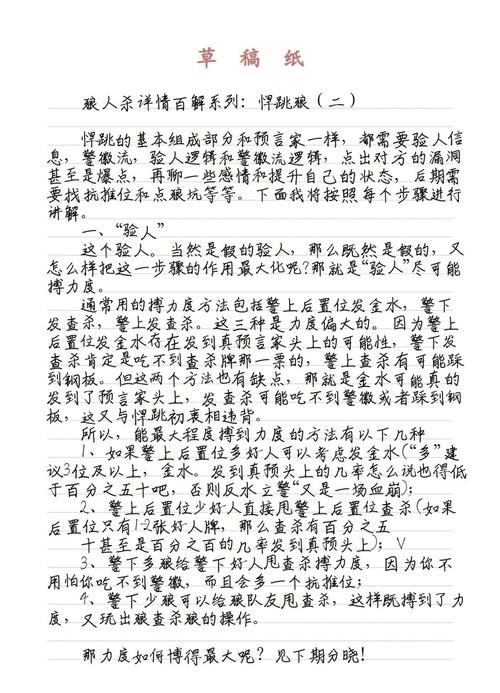 草稿纸
狼人杀详情百解系列：悍跳狼（二）
悍跳的基本组成部分和预言家一样，都需要验人信
息，警徽流，验人逻辑和警徽流逻辑，点出对方的漏洞
甚至是爆点，再聊一些感情和提升自己的状态，后期需
要找抗推位和点狼坑等等。下面我将按照每个步骤进行
讲解。
一、“验人”
这个验人。当然是假的验人，那么既然是假的，又
怎么样把这一步骤的作用最大化呢？那就是“验人”尽可能
搏力度。
通常用的搏力度方法包括警上后置位发金水，警下
发查杀，警上发查杀。这三种是力度偏大的。因为警上
后置位发金水存在发到真预言家头上的可能性，警下发
查杀肯定是吃不到查杀牌那一票的，警上查杀有可能踩
到钢板。但这两个方法也有缺点，那就是金水可能真的
发到了预言家头上，发查杀可能吃不到警徽或者踩到钢
板，这又与悍跳初衷相违背。
所以，能最大程度搏到力度的方法有以下几种
1、如果警上后置位多好人可以考虑发金水（“多”建
议3位及以上，金水。发到真预头上的几率怎么说也得低
于百分之五十吧，否则反水立警“又是一场血崩）；
2、警上后置位少好人直接甩警上后置位查杀（如果
后置位只有1-2张好人牌，那么查杀有百分之五
十甚至是百分之百的几率发到真预头上）；V
3、警下多狼给警下好人甩查杀搏力度，因为你不
用怕你吃不到警徽，而且会多一个抗推位；
4、警下少狼可以给狼队友甩查杀，这样既搏到了力
度，又玩出狼查杀狼的操作。
那力度如何博得最大呢？见下期分晓！